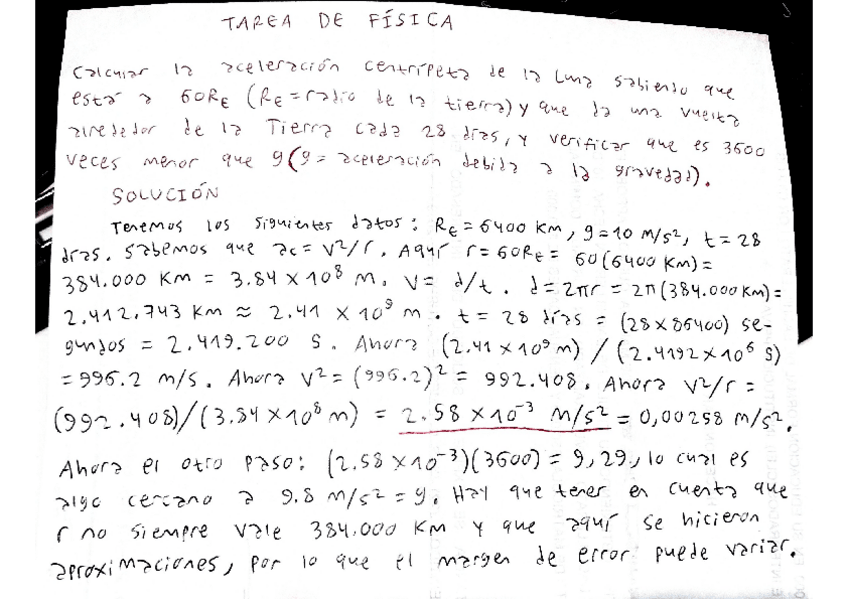 TAREA DE FÍSICA
Calcular la aceleración centrípeta de la Luna sabiendo que
está a 60RE (RE = radio de la tierra) y que da una vuelta
alrededor de la Tierra cada 28 días, y verificar que es 3600
veces menor que g (g = aceleración debida a la gravedad).
SOLUCIÓN
Tenemos los siguientes datos: RE = 6400 Km, g = 10 m/s², t = 28
días. Sabemos que ac = v²/r. Aquí r = 60RE = 60(6400 Km) =
384.000 Km = 3.84 × 10⁸ m. V = d/t. d = 2πr = 2π(384.000 Km) =
2.412.743 Km ≈ 2.41 × 10⁹ m. t = 28 días = (28 × 86400) se-
gundos = 2.419.200 s. Ahora (2.41 × 10⁹ m) / (2.4192 × 10⁶ s)
= 996.2 m/s. Ahora V² = (996.2)² = 992.408. Ahora V²/r =
(992.408)/(3.84 × 10⁸ m) = 2.58 × 10⁻³ m/s² = 0,00258 m/s².
Ahora el otro paso: (2.58 × 10⁻³)(3600) = 9,29, lo cual es
algo cercano a 9.8 m/s² = g. Hay que tener en cuenta que
r no siempre vale 384.000 Km y que aquí se hicieron
aproximaciones, por lo que el margen de error puede variar.